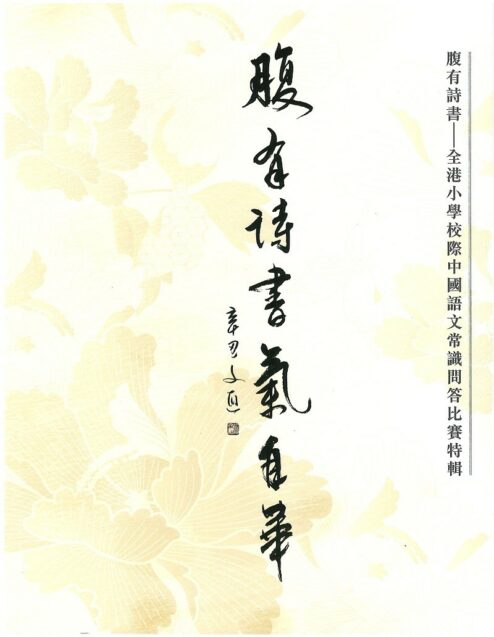 腹有詩書——全港小學校際中國語文常識問答比賽特輯
腹有詩書氣自華
辛丑文直